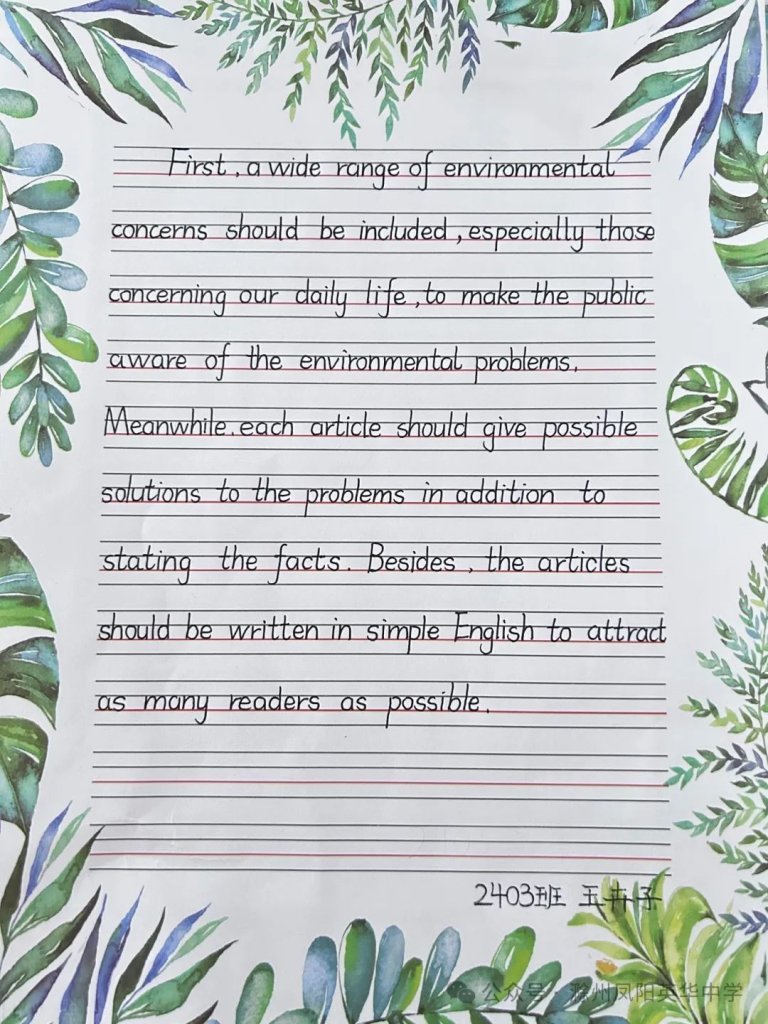 First, a wide range of environmental
concerns should be included, especially those
concerning our daily life, to make the public
aware of the environmental problems.
Meanwhile, each article should give possible
solutions to the problems in addition to
stating the facts. Besides, the articles
should be written in simple English to attract
as many readers as possible.
2403班 王卉子
公众号·滁州凤阳英华中学